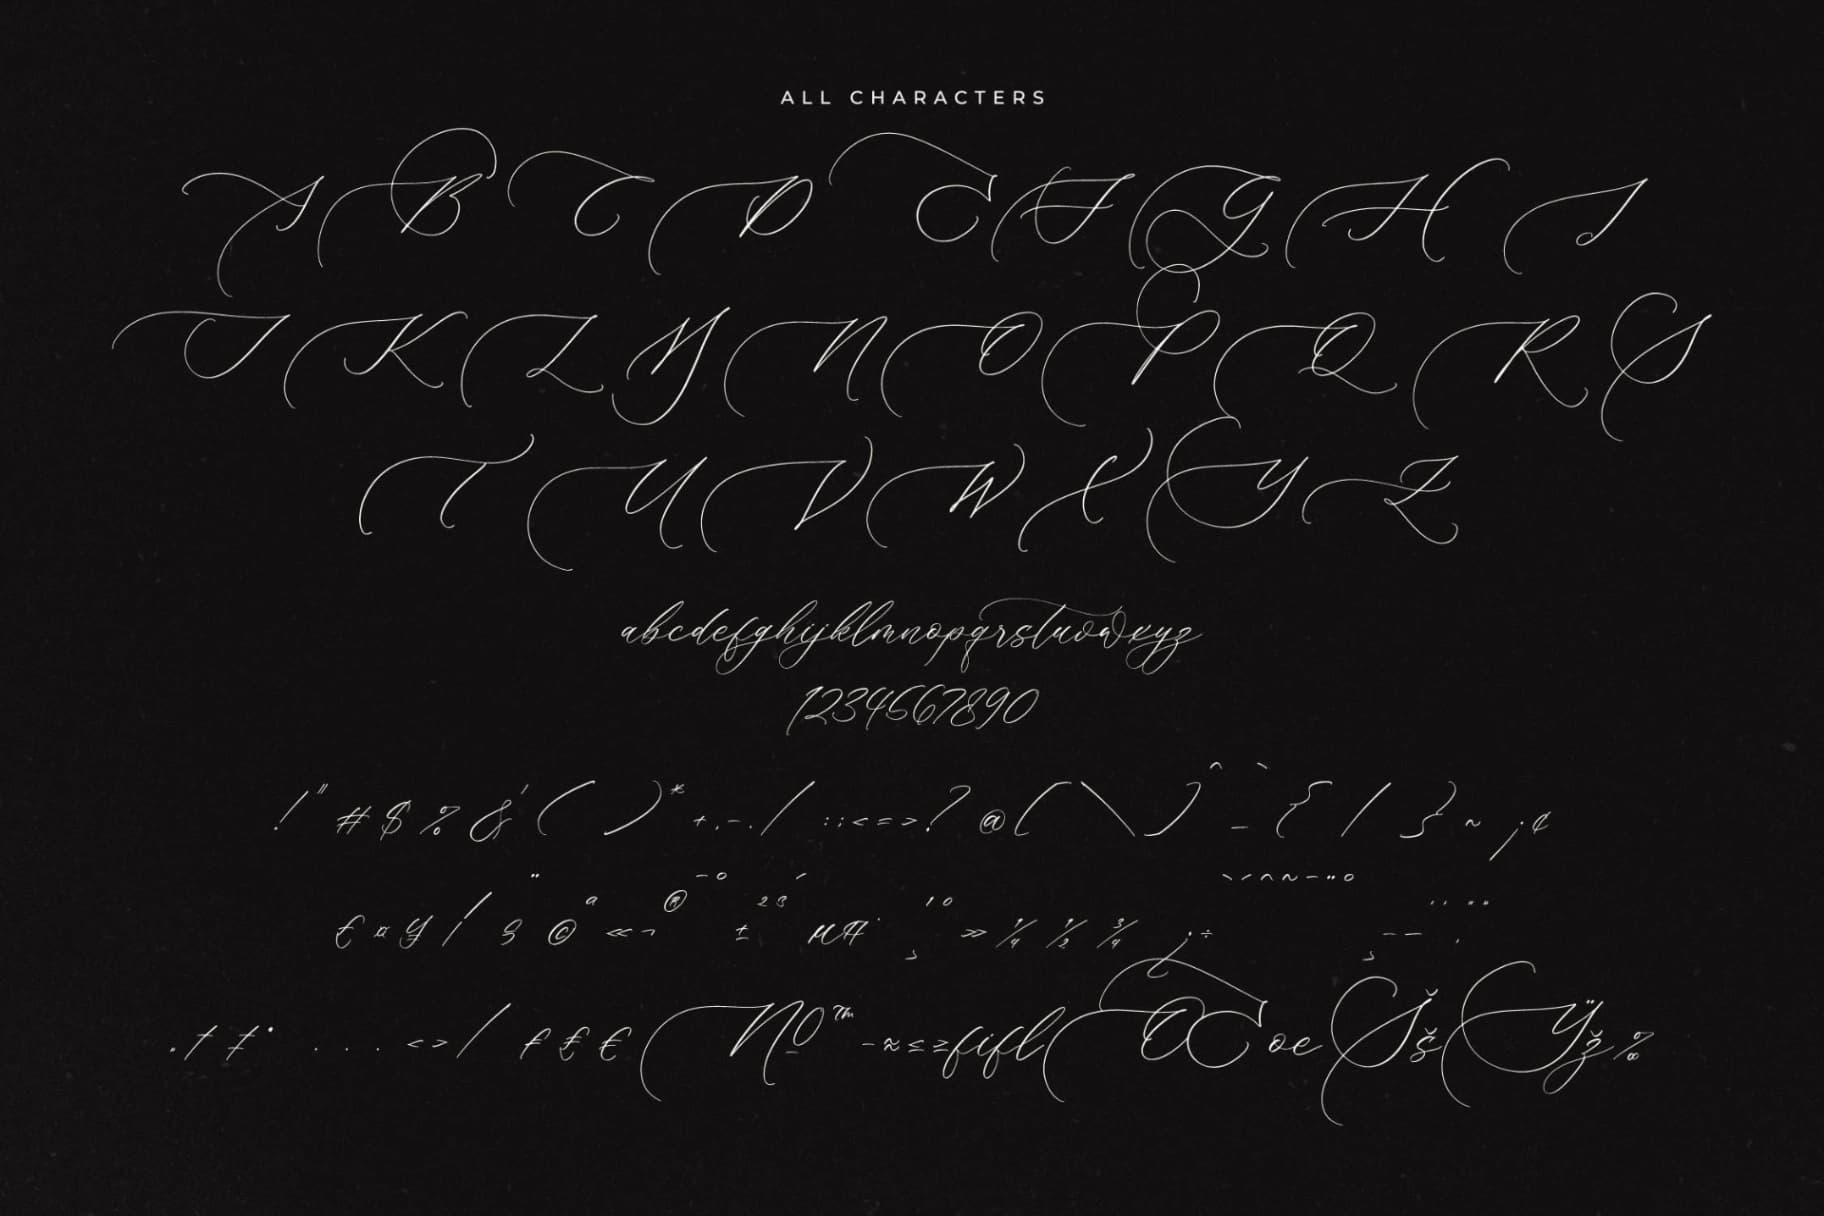 ALL CHARACTERS
A B C D E F G H I
J K L M N O P Q R S
T U V W X Y Z
abcdefghijklmnopqrstuvwxyz
1234567890
! " # $ % & ' ( ) * + , - . / : ; < = > ? @ [ \ ] ^ ` _ { | } ~ ¡ ¢
£ ¤ ¥ ¦ § ¨ © ª « ¬ ® ¯ ° ± ² ³ ´ µ ¶ · ¸ ¹ º » ¼ ½ ¾ ¿ ÷
† ‡ • . . . < > / ƒ ₤ € № ™ - ≈ ≤ ≥ fi fl Œ œ Š š Ÿ ž ‰